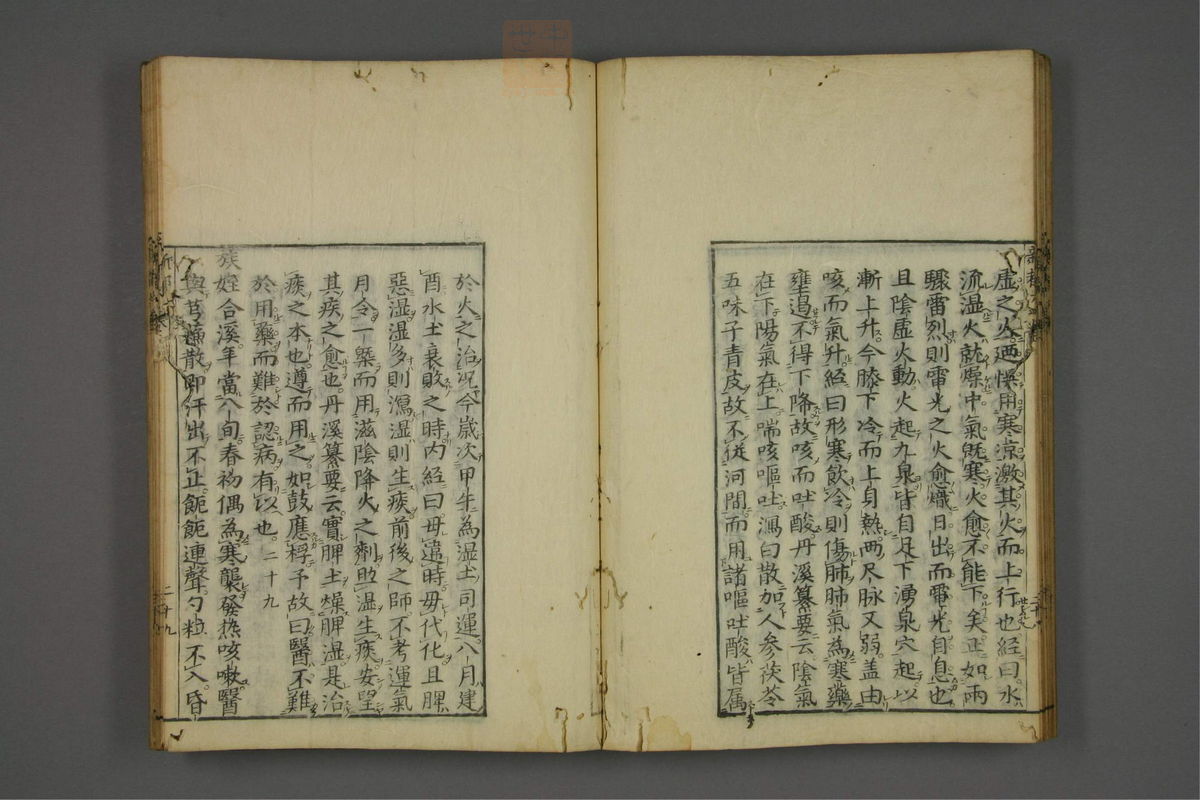 虛之火廼悞用寒涼激其火而上行也経曰水
流湿火就燥中氣旣寒火愈不能下矣正如雨
驟雷烈則電光之火愈熾日出而電光自息也
且陰虛火動火起九泉皆自足下湧泉穴起以
漸上升今膝下冷而上身熱両尺脉又弱盖由
咳而氣升經曰形寒飲冷則傷肺肺氣為寒藥
壅遏不得下降故咳而吐酸丹溪纂要云陰氣
在下陽氣在上喘咳嘔吐瀉白散加人參茯苓
五味子青皮故不従河間而用諸嘔吐酸皆属
於火之治况今歲次甲午為湿土司運八月建
酉水土衰敗之時内經曰毋違時毋代化且脾
惡湿湿多則瀉湿則生疾前後之師不考運氣
月令一槩而用滋陰降火之劑助湿生痰安望
其疾之愈也丹溪纂要云實脾土燥脾湿是治
痰之本也遵而用之如鼓應桴予故曰醫不難
於用藥而難於認病有以也二十九
族姪合溪年當八旬春初偶為寒襲發热咳嗽醫
與芎蘓散即汗出不止飢飢連聲勺粒不入昏